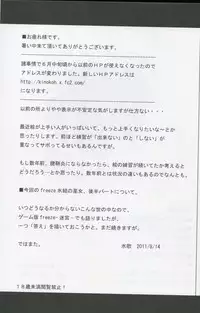 ■お疲れ様です。
暑い中来て頂いてありがとうございます。
諸事情で6月中旬頃から以前のHPが使えなくなったので
アドレスが変わりました。新しいHPアドレスは
http://kinokoh.x.fc2.com/
になります。
以前の社よりやや表示が不安定な気がしますが仕方ない・・・
最近絵が上手い人がいっぱいいて、もっと上手くなりたいな～とか
思ったりします。前ほど練習が「出来ない」のと「しない」が
重なってサボってるせいもあるんですが。
もし数年前、腱鞘炎にならなかったら、絵の練習が続いてたか考えると
どうだろう・・・とか思ったり。数年前とは状況の違いもあるんでとも。
■今回のfreeze 氷結の巫女、後半パートについて。
いつどうなるか分からないこんな世の中なので、
ゲーム版freeze-迷宮-でも語りましたが、
一つ「答え」を描いておこうかと。まだ続きますが。
ではまた。
水歌 2011/8/14
18歳未満閲覧禁止!